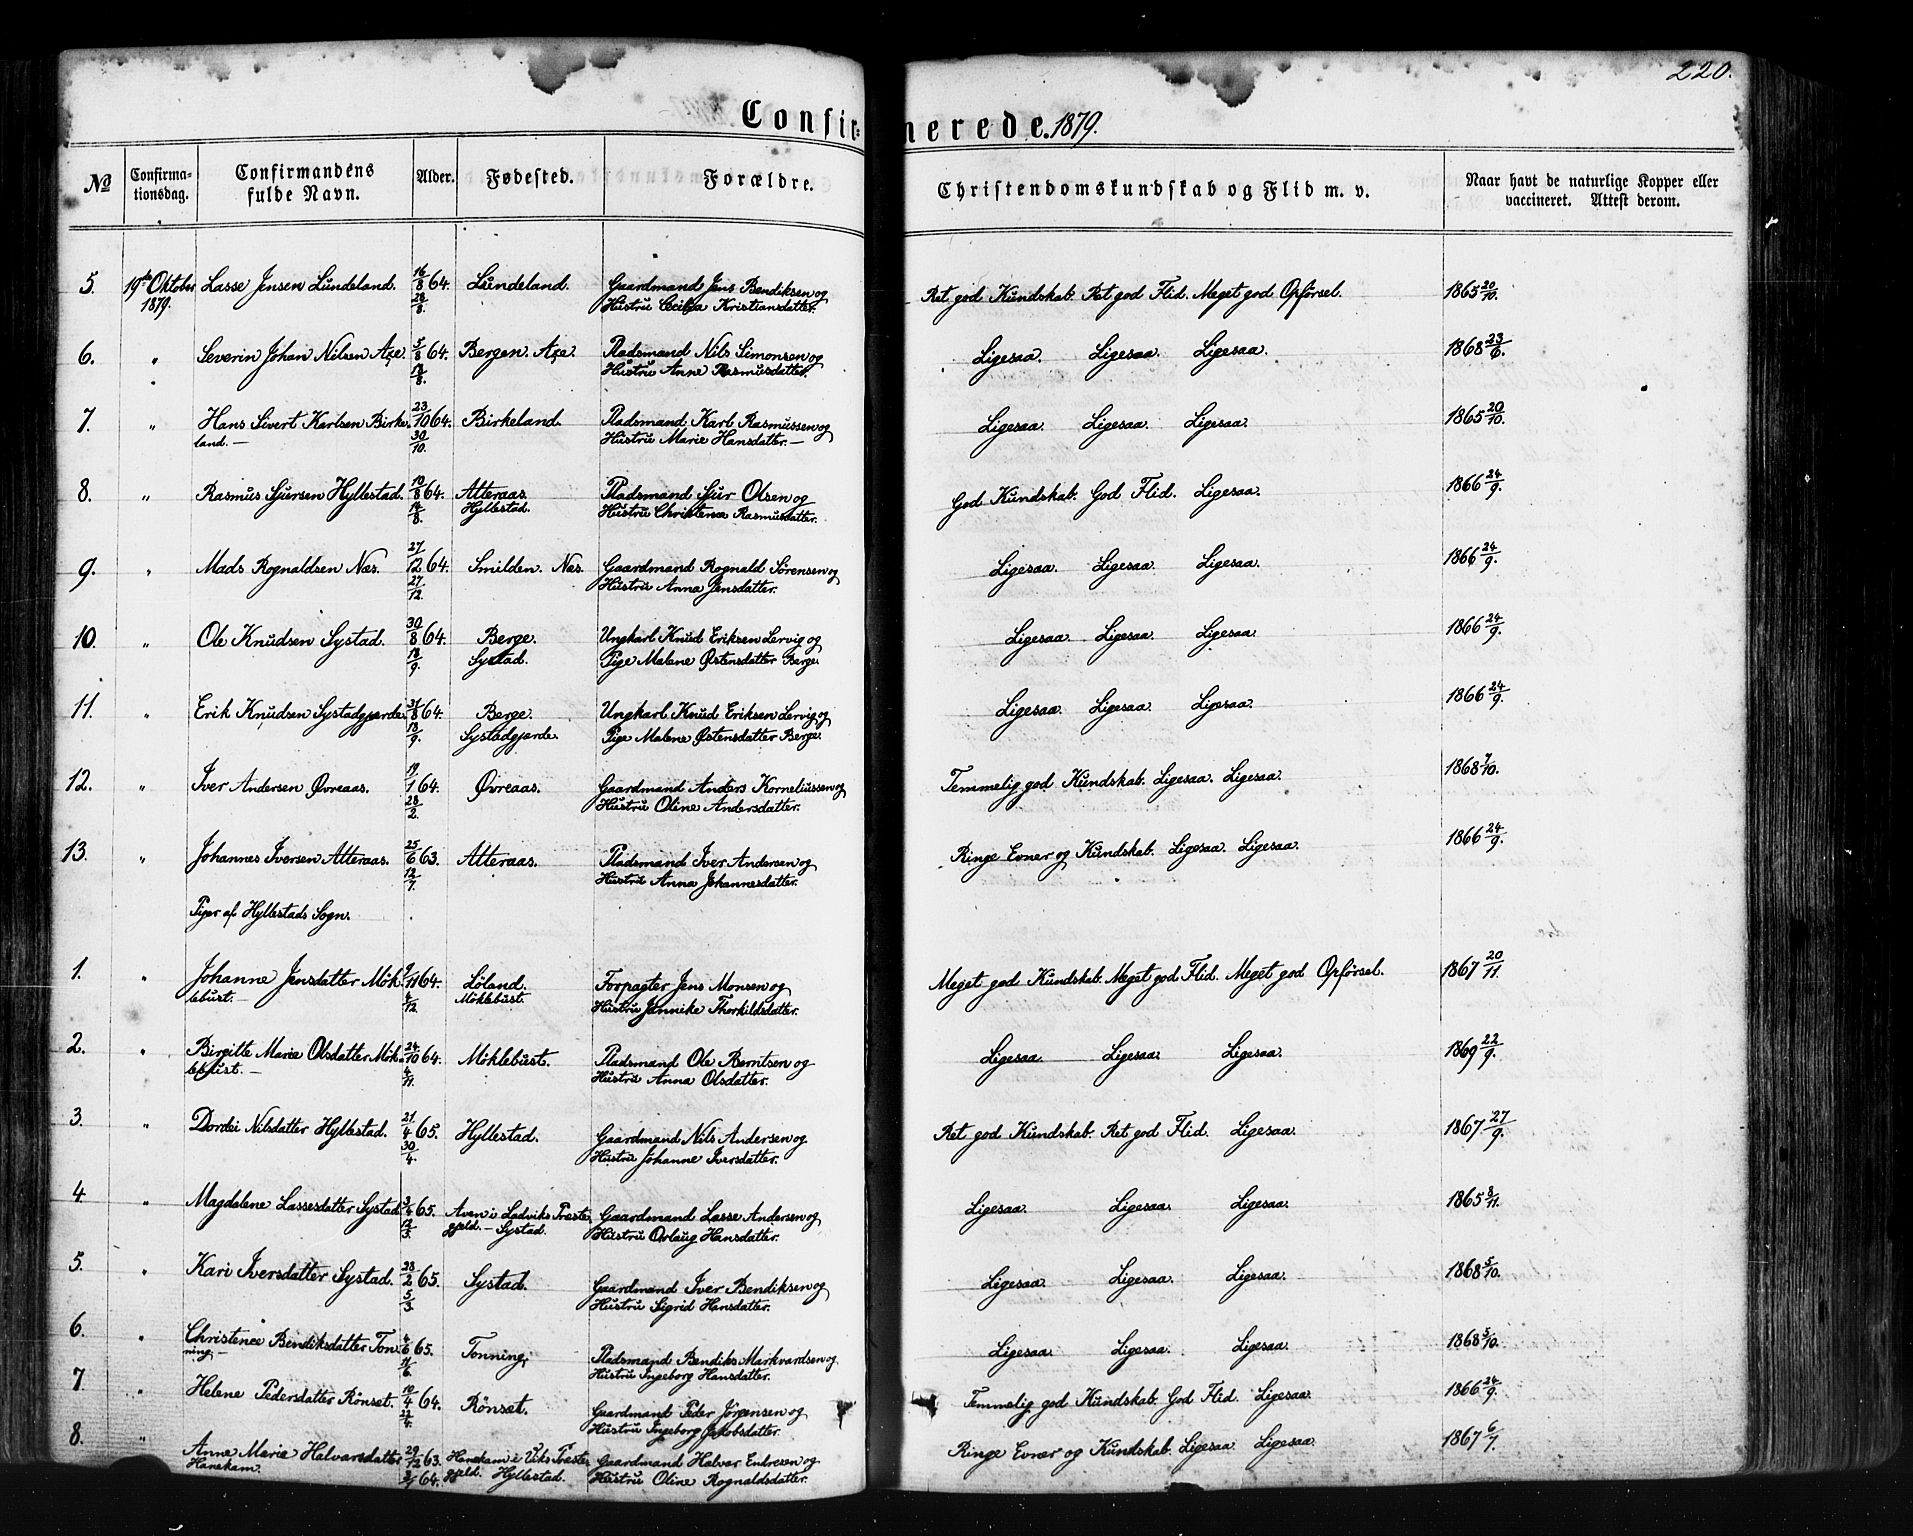 220.
Confir=merede. 1879.
No Confirma-tionsdag. Confirmandens fulde Navn. Alder. Fødested. Forældre. Christendomskundskab og Flid m. v. Naar havt de naturlige Kopper eller vaccineret. Attest derom.
5. 19de Oktober Lasse Jensen Lundeland. 16/8 64. Lundeland. Gaardmand Jens Bendiksen og Ret god Kundskab. Ret god Flid. Meget god Opförsel. 1865 20/10.
1879. 28/8. Hustru Cecilia Kristiansdatter.
6. " Severin Johan Nilsen Axe. 5/8 64. Bergen. Axe. Pladsmand Nils Simonsen og Ligesaa. Ligesaa. Ligesaa. 1868 23/6.
Hustru Anne Rasmusdatter.
7. " Hans Sivert Karlsen Birke 23/10 64. Birkeland. Pladsmand Karl Rasmussen og Ligesaa. Ligesaa. Ligesaa. 1865 20/10.
land. — 30/10. Hustru Marie Hansdatter. —
8. " Rasmus Sjursen Hyllestad. 10/8 64. Atteraas. Pladsmand Sjur Olsen og God Kundskab. God Flid. Ligesaa. 1866 24/9.
14/8. Hyllestad. Hustru Christence Rasmusdatter.
9. " Mads Rognaldsen Næs. 27/12 64. Smilden. Næs. Gaardmand Rognald Sörensen og Ligesaa. Ligesaa. Ligesaa. 1866 24/9.
27/12. Hustru Anna Jensdatter.
10. " Ole Knudsen Systad. 30/8 64. Berge. Ungkarl Knud Eriksen Lervig og Ligesaa. Ligesaa. Ligesaa. 1866 24/9.
18/9. Systad. Pige Malene Østensdatter Berge.
11. " Erik Knudsen Systadgjerde. 31/8 64. Berge. Ungkarl Knud Eriksen Lervig og Ligesaa. Ligesaa. Ligesaa. 1866 24/9.
18/9. Systadgjerde. Pige Malene Østensdatter Berge.
12. " Iver Andersen Øvreaas. 19/1 64. Øvreaas. Gaardmand Anders Korneliussen og Temmelig god Kundskab. Ligesaa. Ligesaa. 1868 7/10.
28/2. Hustru Oline Andersdatter.
13. " Johannes Iversen Atteraas. 25/6 63. Atteraas. Pladsmand Iver Andersen og Ringe Evner og Kundskab. Ligesaa. Ligesaa. 1866 24/9.
12/7. Hustru Anna Johannesdatter.
Piger af Hyllestads Sogn.
1. " Johanne Jensdatter Mök 9/11 64. Löland. Forpagter Jens Monsen og Meget god Kundskab. Meget god Flid. Meget god Opförsel. 1867 20/11.
lebust. — 4/12. Möklebust. Hustru Jannike Thorkildsdatter.
2. " Birgitte Marie Olsdatter Mök 24/10 64. Möklebust. Pladsmand Ole Berntsen og Ligesaa. Ligesaa. Ligesaa. 1869 22/9.
lebust. — 4/11. Hustru Anna Olsdatter.
3. " Dordei Nilsdatter Hyllestad. 21/4 65. Hyllestad. Gaardmand Nils Andersen og Ret god Kundskab. Ret god Flid. Ligesaa. 1867 27/9.
30/4. Hustru Johanne Iversdatter.
4. " Magdalene Lassesdatter Systad. 3/4 65. Aven i Ladviks Præste Gaardmand Lasse Andersen og Ligesaa. Ligesaa. Ligesaa. 1865 8/11.
gjeld. — Systad. Hustru Orlaug Hansdatter.
5. " Kari Iversdatter Systad. 28/2 65. Systad. Gaardmand Iver Bendiksen og Ligesaa. Ligesaa. Ligesaa. 1868 5/10.
5/3. Hustru Sigrid Hansdatter.
6. " Christence Bendiksdatter Ton 4/6 65. Tonning. Pladsmand Bendiks Markvardsen og Ligesaa. Ligesaa. Ligesaa. 1868 5/10.
ning — 11/6. Hustru Ingeborg Hansdatter.
7. " Helene Pedersdatter Rönset. 10/4 64. Rönset. Gaardmand Peder Jörgensen og Temmelig god Kundskab. God Flid. Ligesaa. 1866 24/9.
22/4. Hustru Ingeborg Jakobsdatter.
8. " Anne Marie Halvarsdatter 29/12 63. Hanekam i Viks Præste Gaardmand Halvor Endresen og Ringe Evner og Kundskab. Ligesaa. Ligesaa. 1867 6/7.
Hanekam. 64. gjeld. Hyllestad. Hustru Oline Rognaldsdatter.